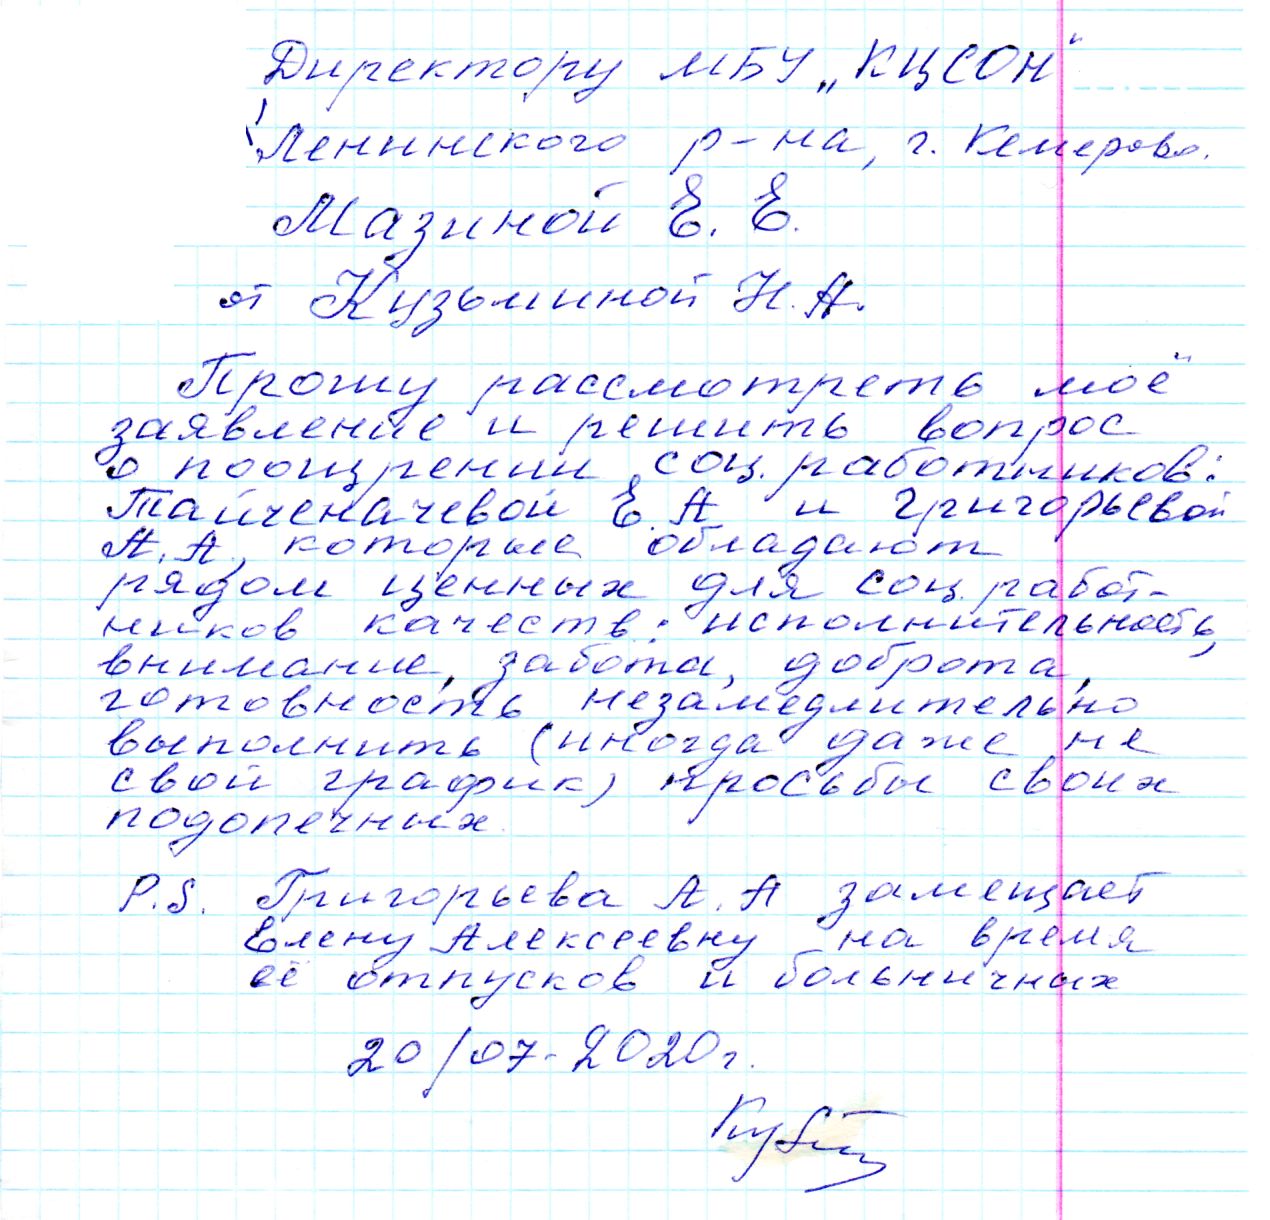 Директору МБУ „КЦСОН"
Ленинского р-на, г. Кемерово.
Мазиной Е. Е.
от Кузьминой Н. А.
Прошу рассмотреть моё
заявление и решить вопрос
о поощрении соц. работников:
Тайченачевой Е. А и Григорьевой
А. А, которые обладают
рядом ценных для соц. работ-
ников качеств: исполнительность,
внимание, забота, доброта,
готовность незамедлительно
выполнить (иногда даже не
свой график) просьбы своих
подопечных.
P.S. Григорьева А. А замещает
Елену Алексеевну на время
её отпусков и больничных
20/07-2020г.